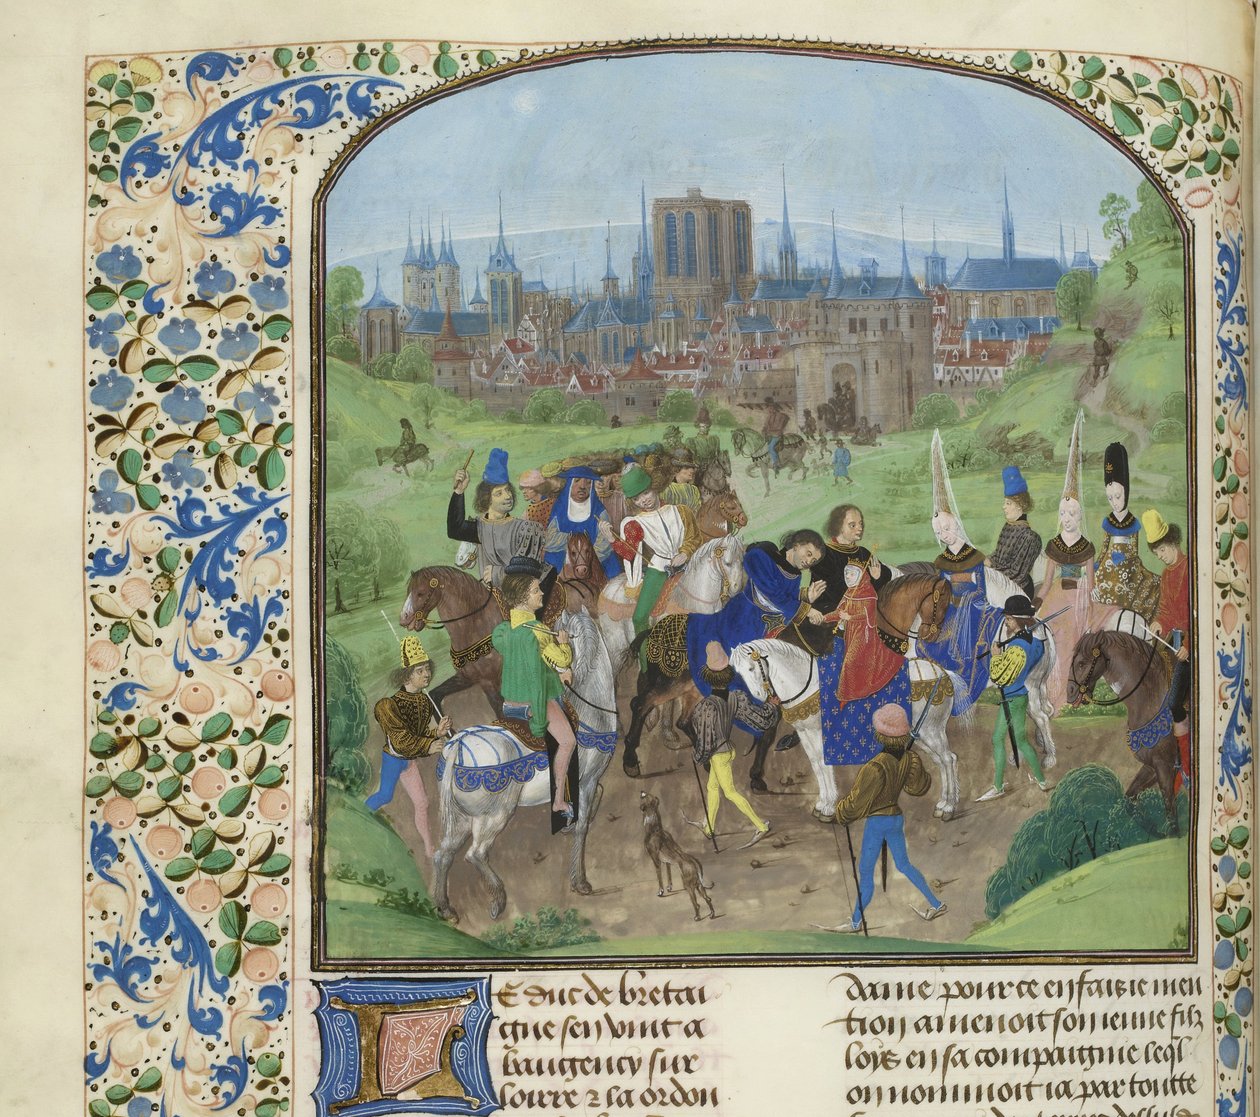 Le duc de bretai
gne sen vint a
baugency sur
loirre ⁊ la ordon
Dame pour ce en faisie men
tion amenoit son ieune filz
loys en sa compaignie leql
on nommoit ia par toutte